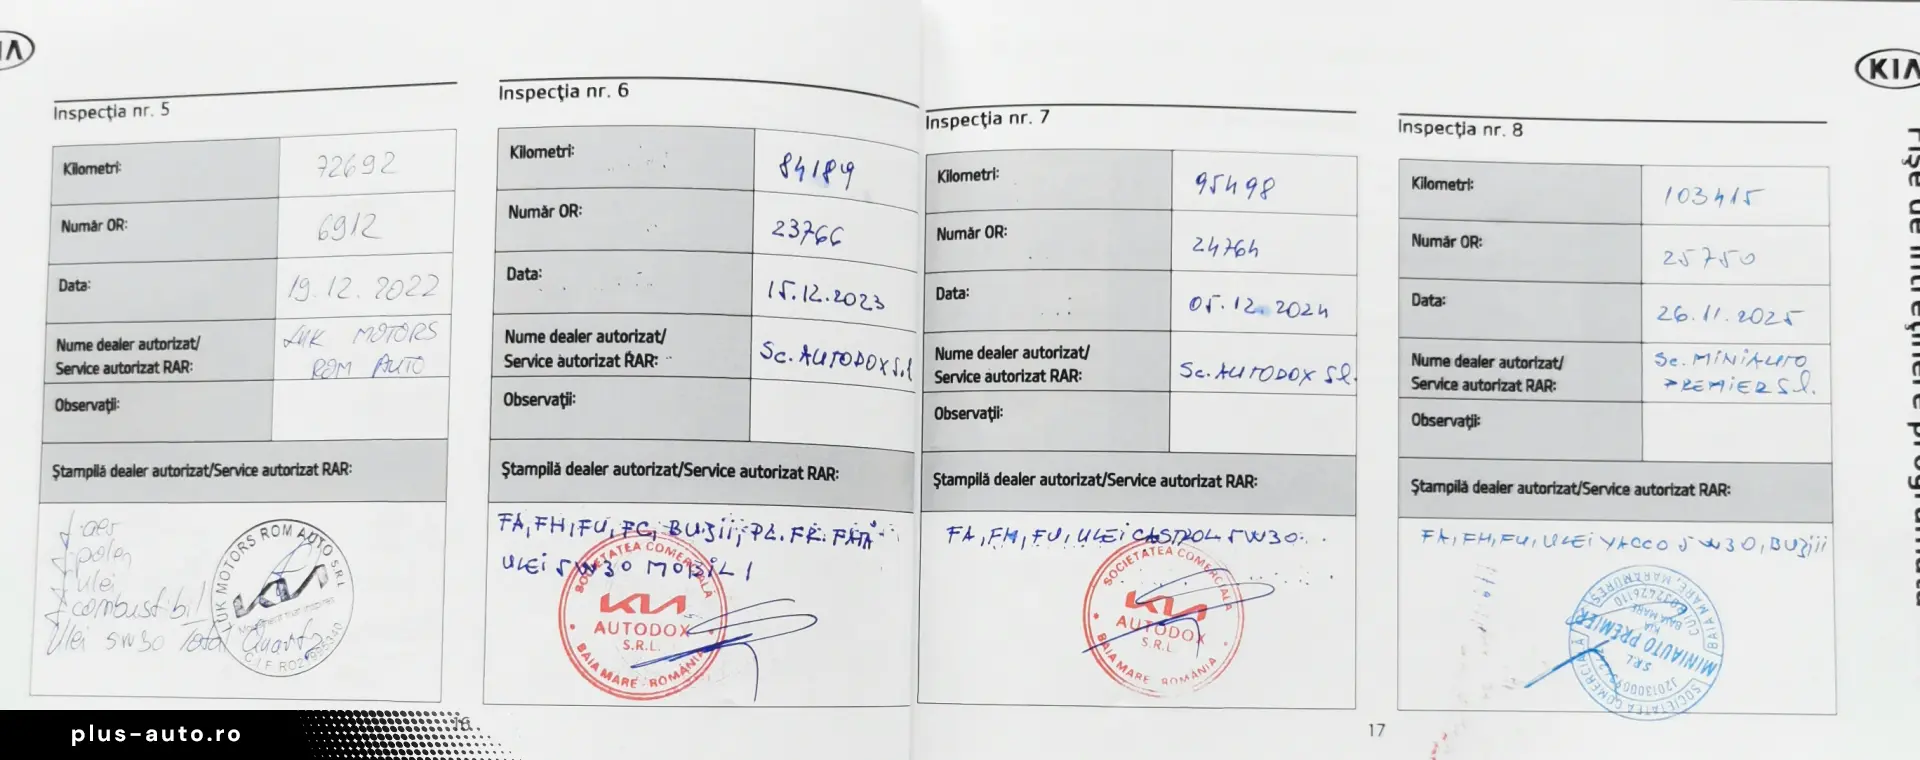 KIA
Inspecția nr. 5
Kilometri: 72692
Număr OR: 6912
Data: 19.12.2022
Nume dealer autorizat/
Service autorizat RAR: UK MOTORS
ROM AUTO
Observații:
Ștampilă dealer autorizat/Service autorizat RAR:
f aer
f polen
f ulei
f combustibil
Ulei 5W30 Total Quartz
UK MOTORS ROM AUTO S.R.L
KIA
Inspecția nr. 6
Kilometri: 84189
Număr OR: 23766
Data: 15.12.2023
Nume dealer autorizat/
Service autorizat RAR: Sc. AUTODOX S.l
Observații:
Ștampilă dealer autorizat/Service autorizat RAR:
FA, FH, FU, FC, BUJII, PL. FR. FAȚĂ
ULEI 5W30 MOBIL 1
SOCIETATEA COMERCIALĂ
KIA
AUTODOX
S.R.L.
BAIA MARE ROMÂNIA
16
Inspecția nr. 7
Kilometri: 95498
Număr OR: 24764
Data: 05.12.2024
Nume dealer autorizat/
Service autorizat RAR: Sc. AUTODOX Sl.
Observații:
Ștampilă dealer autorizat/Service autorizat RAR:
FA, FH, FU, ULEI CASTROL 5W30
SOCIETATEA COMERCIALĂ
KIA
AUTODOX
S.R.L.
BAIA MARE ROMÂNIA
17
KIA
Inspecția nr. 8
Kilometri: 103415
Număr OR: 25750
Data: 26.11.2025
Nume dealer autorizat/
Service autorizat RAR: Sc. MINIAUTO
PREMIER S.l.
Observații:
Ștampilă dealer autorizat/Service autorizat RAR:
FA, FH, FU, ULEI YACCO 5W30, BUJII
SOCIETATEA COMERCIALĂ
MINIAUTO PREMIER
SRL
KIA
BAIA MARE
Fișe de întreținere programată
plus-auto.ro